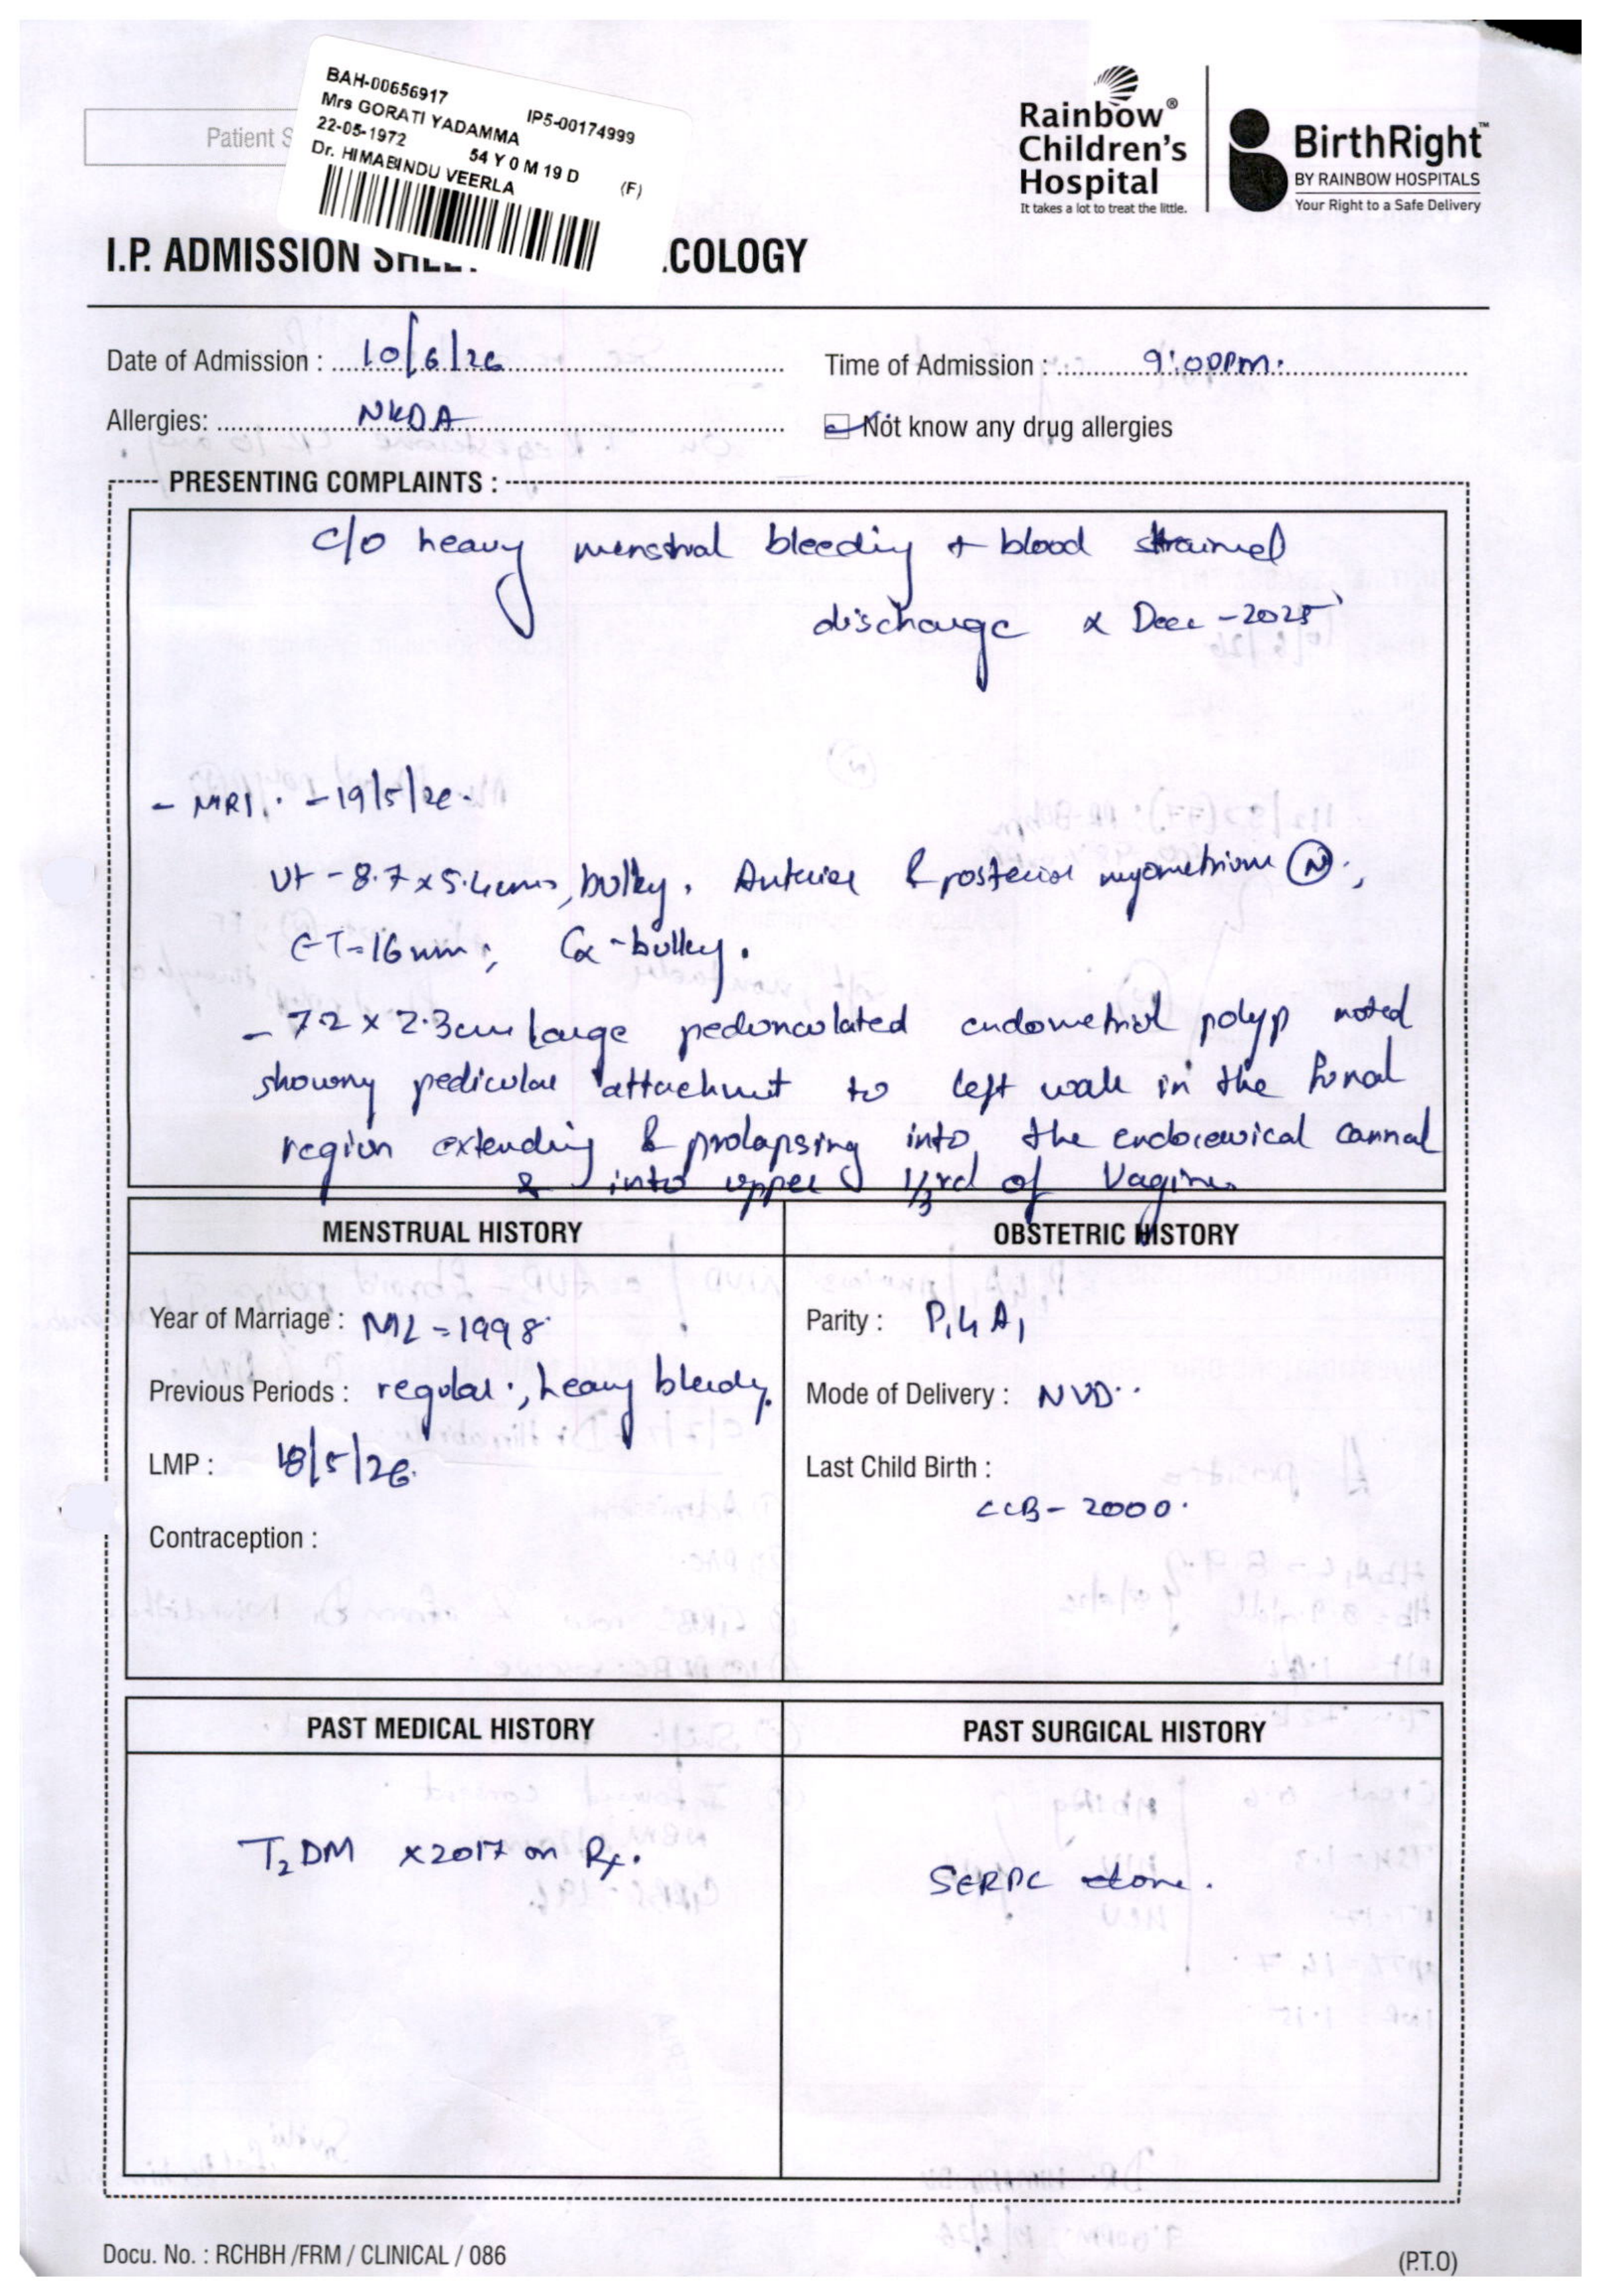 BAH-00656917
IP5-00174999
Mrs GORATI YADAMMA
22-05-1972
54 Y 0 M 19 D
(F)
Dr. HIMABINDU VEERLA
Patient S
Rainbow®
Children's
Hospital
It takes a lot to treat the little.
BirthRight™
BY RAINBOW HOSPITALS
Your Right to a Safe Delivery
I.P. ADMISSION SHEET COLOGY
Date of Admission : 10/6/26
Time of Admission : 9:00pm.
Allergies: NKDA
Not know any drug allergies
PRESENTING COMPLAINTS :
c/o heavy menstrual bleeding + blood strained
discharge x Dec - 2025
- MRI. - 19/5/26.
Ut - 8.7 x 5.4cms, bulky. Anterior & posterior myometrium (N).,
ET=16mm; Cx - bulky.
- 7.2 x 2.3cm large pedunculated endometrial polyp noted
showing pedicular attachment to left wall in the fundal
region extending & prolapsing into the endocervical cannal
& into upper 1/3rd of Vagina
MENSTRUAL HISTORY
OBSTETRIC HISTORY
Year of Marriage : ML - 1998
Parity : P1L1A1
Previous Periods : regular., heavy bleeding.
Mode of Delivery : NVD..
LMP : 18/5/26.
Last Child Birth :
LCB - 2000.
Contraception :
PAST MEDICAL HISTORY
PAST SURGICAL HISTORY
T2DM x2017 on Rx.
SERPC done.
Docu. No. : RCHBH /FRM / CLINICAL / 086
(P.T.O)